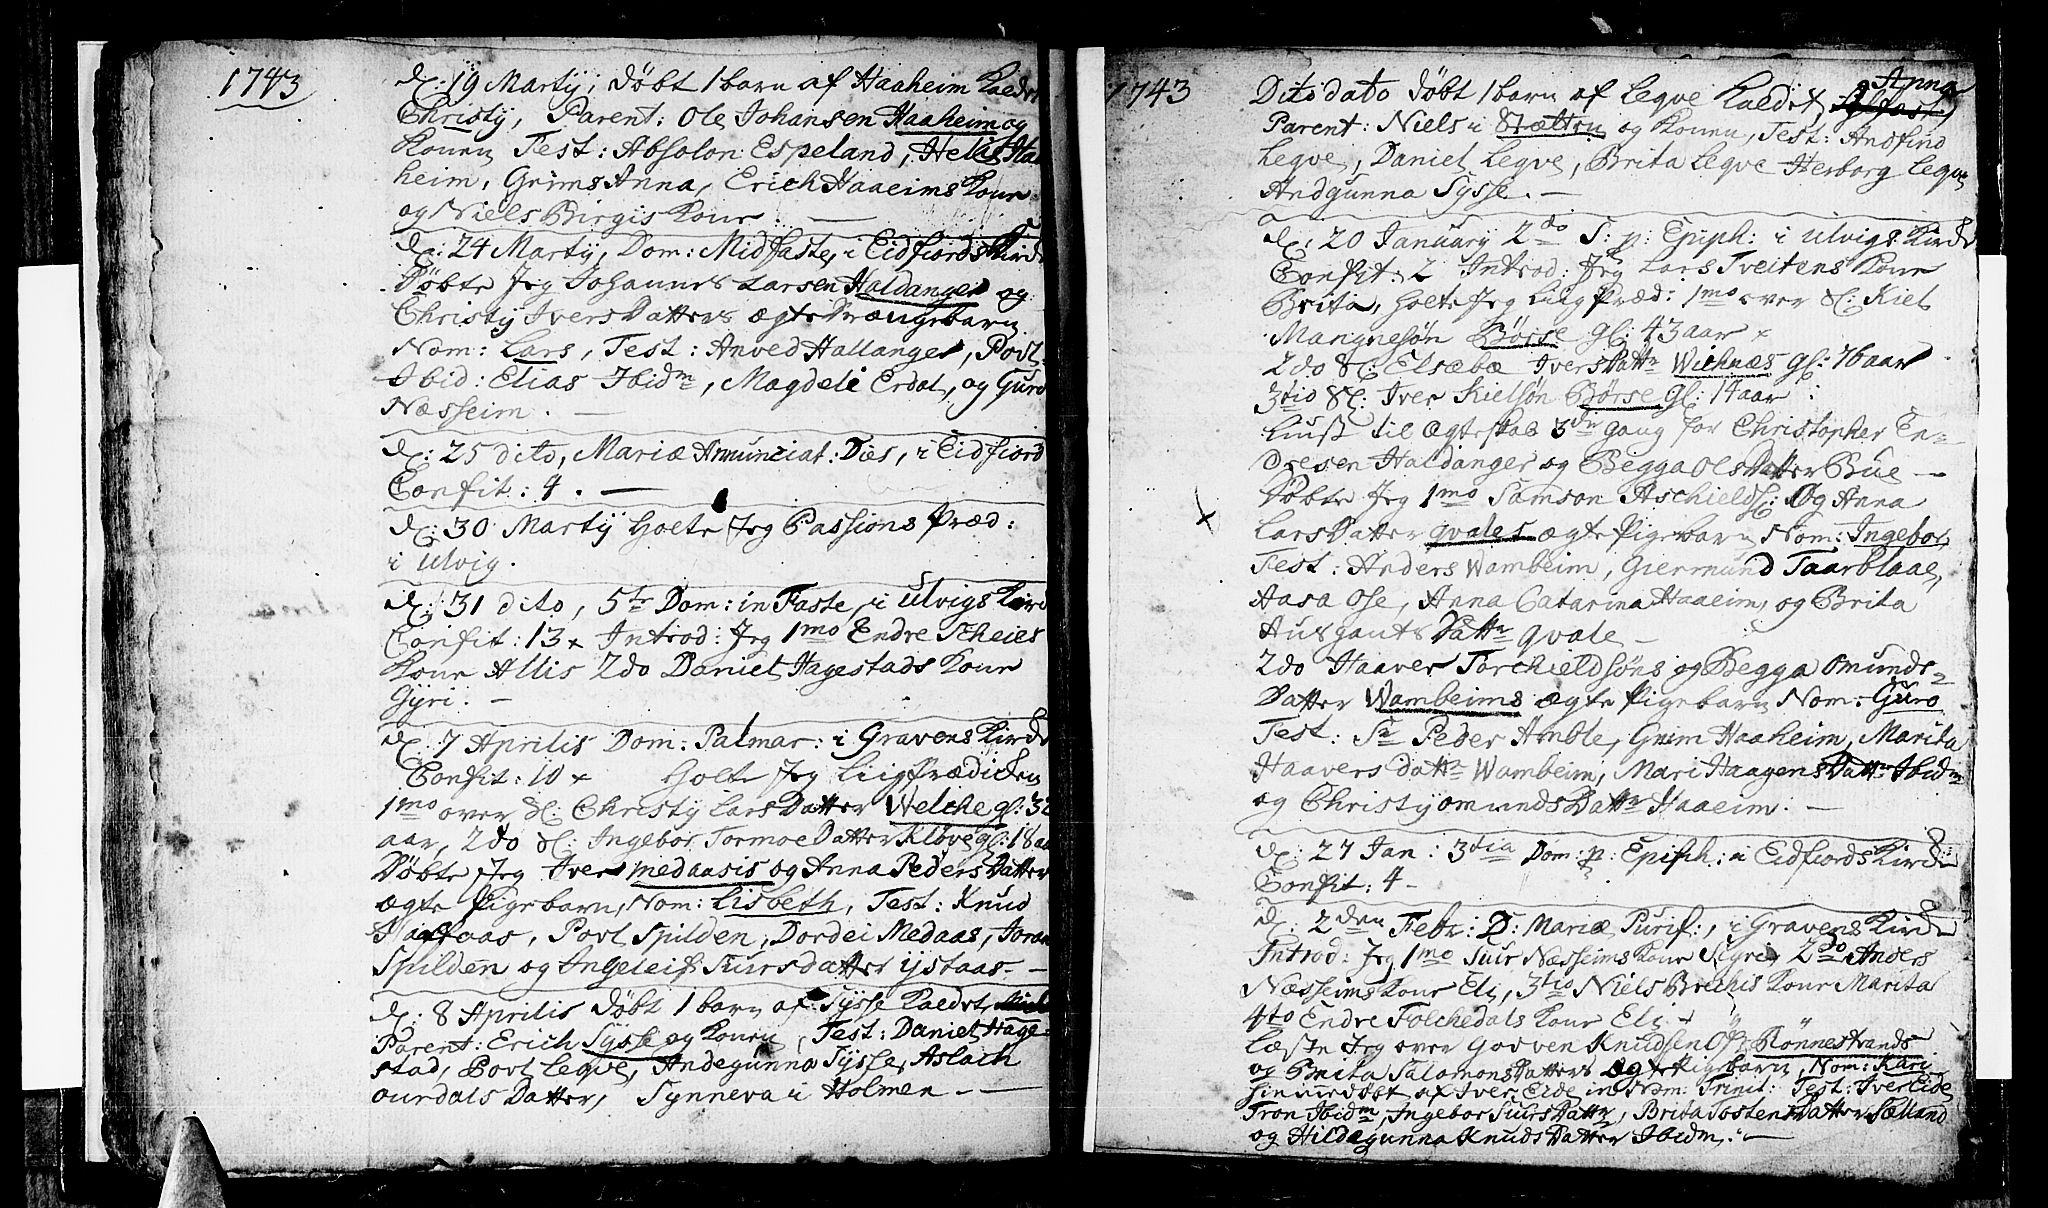 1743
d: 19 Martÿ; døbt 1 barn af Haaheim kaldet
Christÿ, Parent: Ole Johansen Haaheim og
Konen Test: Absolon Espeland, Helis Haa
heim, Grims Anna, Erich Haaeims Kone
og Niels Birgis Kone. —
d: 24 Martÿ, Dom: Midfaste, i Eidfiords Kirke
Døbte Jeg Johannes Larsen Haldanger og
Christÿ Ivers Datters ægte Drængebarn
Nom: Lars, Test: Anved Hallanger, Povl
Ibid: Elias Ibidm, Magdeli Erdal, og Guro
Næsseim. —
d: 25 dito, Mariæ Annunciat: Dies, i Eidfiord
Confit: 4. —
d: 30 Martÿ Holte Jeg Passions Præd:
i Ulvig.
d: 31 dito, 5te Dom: in Faste, i Ulvigs Kirke
Confit: 13 × Introd: Jeg 1mo Endre Scheies
Kone Allis 2do Daniel Hagestads Kone
Gÿri: —
d: 7 Aprilis Dom: Palmar: i Gravens Kirke
Confit: 10 × Holte Jeg Liig Prædicken
1mo over Sl: Christÿ Lars Datter Welche gl: 32
aar, 2do Sl: Ingebor Tormoe Datter Kløve gl: 18 aar
Døbte Jeg Iver Medaasis og Anna Peders Datter
ægte Pigebarn, Nom: Lisbeth, Test: Knud
Haftaas, Povl Spilden, Dordei Medaas, Joran
Spilden og Ingeleif Siurs datter Ystaas —
d: 8 Aprilis døbt 1 barn af Sÿsse kaldet,
Parent: Erich Sÿsse og Konen, Test: Daniel Hage-
stad, Povl Leqve, Andegunna Sÿsse, Aslach
ourdals Datter, Synneva i Holmen — —
1743
Dito dato døbt 1 barn af Leqve kaldet, Anna
Parent: Niels i Stætten og Konen, Test: Andfind
Leqve, Daniel Leqve, Brita Leqve Herborg Leqve
Andgunna Sÿsse. —
d: 20 Januarÿ 2do S: p: Epiph: i Ulvigs Kirke
Confit: 2 Introd: Jeg Lars Tveitens Kone
Brita, holte Jeg Liig Præd: 1mo over Sl: Kiel
Mangnesøn Børse gl: 43 aar ×
2do Sl: Elsæbæ Ivers Dattr Wichnæs gl: 76 aar
3tio Sl: Iver Kielsøn Børse gl: 14 aar :
Liust til Ægteskab 3die gang for Christopher En-
dresen Haldanger og Begga Ols Datter Bue —
Døbte Jeg 1mo Samson Aschields: Og Anna
Lars Datter Qvales ægte Pigebarn Nom: Ingebor,
Test: Anders Wambeim, Giermund Taarblaae,
Aasa Ose, Anna Catarina Haaeim, og Brita
Ausgauts Dattr Qvale —
2do Haaver Torchieldsøns og Begga Omunds-
Datter Wambeims ægte Pigebarn Nom: Guro
Test: Sr Peder Amble, Grim Haaheim, Marita
Haavers dattr Wambeim, Mari Haagens Dattr Ibidm
og Christÿ Omunds Dattr Haaeim. —
d: 27 Jan: 3tia Dom: p: Epiph: i Eidfiords Kirke
Confit: 4 —
d: 2den Febr: D: Mariæ Purif:, i Gravens Kirke
Introd: Jeg 1mo Siur Næsseims Kone Sigri 2do Anders
Næsseims Kone Eli, 3tio Niels Brechis Kone Marita
4to Endre Folchedals Kone Eli —
Læste Jeg over Govven Knudsen Øfr Rönnestrands
og Brita Salomons Datters Ægte Pigebarn, Nom: Kari
hiemmedøbt af Iver Eide in Nom: Trinit: Test: Iver Eide
Tron Ibidm, Ingebor Siurs Dattr, Brita Tostens Datter Sælland
og Hildegunna Knuds Datter Ibidm: —